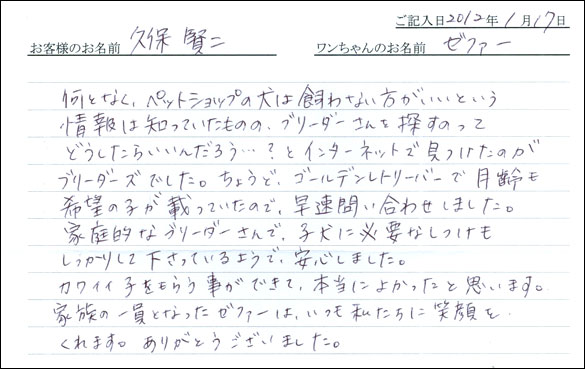 ご記入日2012年1月17日
お客様のお名前 久保 賢二 ワンちゃんのお名前 ゼファー
何となく、ペットショップの犬は飼わない方がいいという
情報は知っていたものの、ブリーダーさんを探すのって
どうしたらいいんだろう…?とインターネットで見つけたのが
ブリーダーズでした。ちょうど、ゴールデンレトリーバーで月齢も
希望の子が載っていたので、早速問い合わせしました。
家庭的なブリーダーさんで、子犬に必要なしつけも
しっかりして下さっているようで、安心しました。
カワイイ子をもらう事ができて、本当によかったと思います。
家族の一員となったゼファーは、いつも私たちに笑顔を
くれます。ありがとうございました。